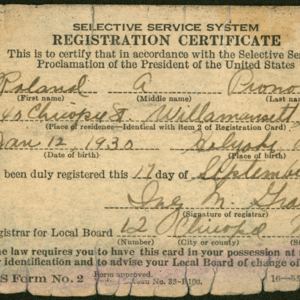 SELECTIVE SERVICE SYSTEM
REGISTRATION CERTIFICATE
This is to certify that in accordance with the Selective Serv
Proclamation of the President of the United States
Roland A
(First name) (Middle name) (Last name)
40 Chicopee St. Willimansett
(Place of residence—Identical with item 2 of Registration Card)
Jan 12, 1930 Holyoke
(Date of birth) (Place of birth)
been duly registered this 17 day of September
(Signature of registrar)
gistrar for Local Board 12 Chicopee
(Number) (City or county)
he law requires you to have this card in your possession at
r identification and to advise your Local Board of change of
SS Form No. 2 Form approved.
16—